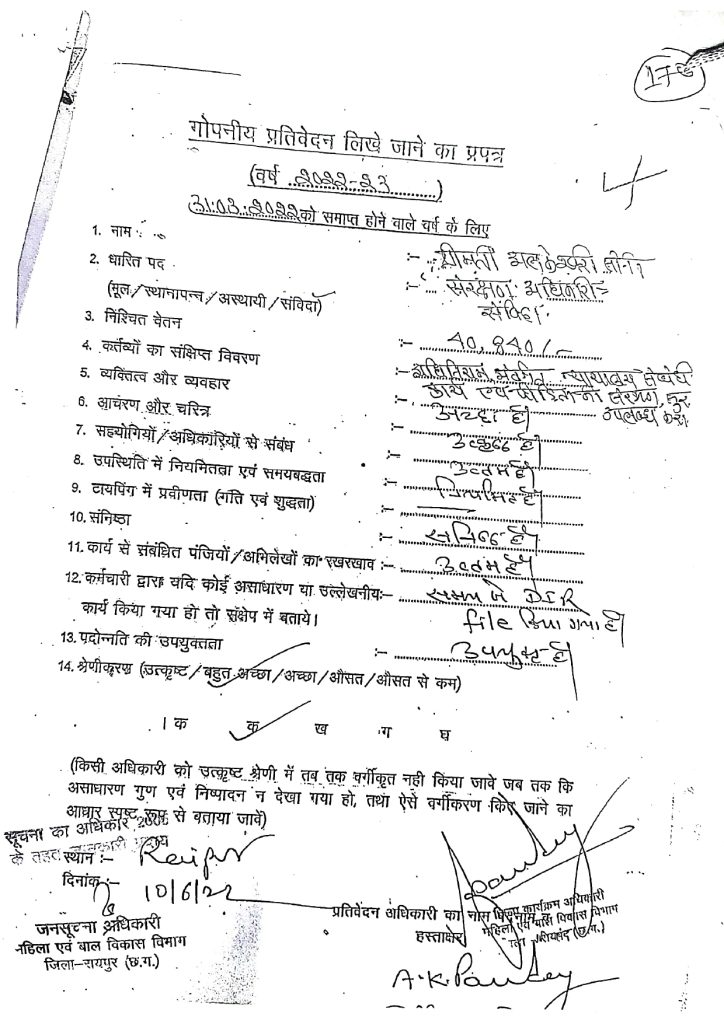 176
गोपनीय प्रतिवेदन लिखे जाने का प्रपत्र
(वर्ष 2022-23)
31.03.2022 को समाप्त होने वाले वर्ष के लिए
1. नाम :- श्रीमती
2. धारित पद :- संरक्षण अधिकारी
(मूल/स्थानापन्न/अस्थायी/संविदा) संविदा
3. निश्चित वेतन :- 40,840/-
4. कर्तव्यों का संक्षिप्त विवरण :- न्यायालय संबंधी
कार्य एवं
उपलब्ध करा
5. व्यक्तित्व और व्यवहार अच्छा है।
6. आचरण और चरित्र :- उत्कृष्ट है।
7. सहयोगियों/अधिकारियों से संबंध :- उत्तम है।
8. उपस्थिति में नियमितता एवं समयबद्धता :- नियमित है।
9. टायपिंग में प्रवीणता (गति एवं शुद्धता)
10. संनिष्ठा है।
11. कार्य से संबंधित पंजियों/अभिलेखों का रखरखाव :- उत्तम है।
12. कर्मचारी द्वारा यदि कोई असाधारण या उल्लेखनीय:- समय से DIR
कार्य किया गया हो तो संक्षेप में बताये। file किया गया है।
13. पदोन्नति की उपयुक्तता :- उपयुक्त है।
14. श्रेणीकरण (उत्कृष्ट/बहुत अच्छा/अच्छा/औसत/औसत से कम)
क क ख ग घ
(किसी अधिकारी को उत्कृष्ट श्रेणी में तब तक वर्गीकृत नही किया जावे जब तक कि
असाधारण गुण एवं निष्पादन न देखा गया हो, तथा ऐसे वर्गीकरण किए जाने का
आधार स्पष्ट रूप से बताया जावे)
सूचना का अधिकार 2005
के तहत
स्थान :- Raipur
दिनांक :- 10/6/22
जनसूचना अधिकारी
महिला एवं बाल विकास विभाग
जिला-रायपुर (छ.ग.)
Pandey
प्रतिवेदन अधिकारी का
हस्ताक्षर
कार्यक्रम अधिकारी
महिला एवं बाल विकास विभाग
(छ.ग.)
A.K. Pandey